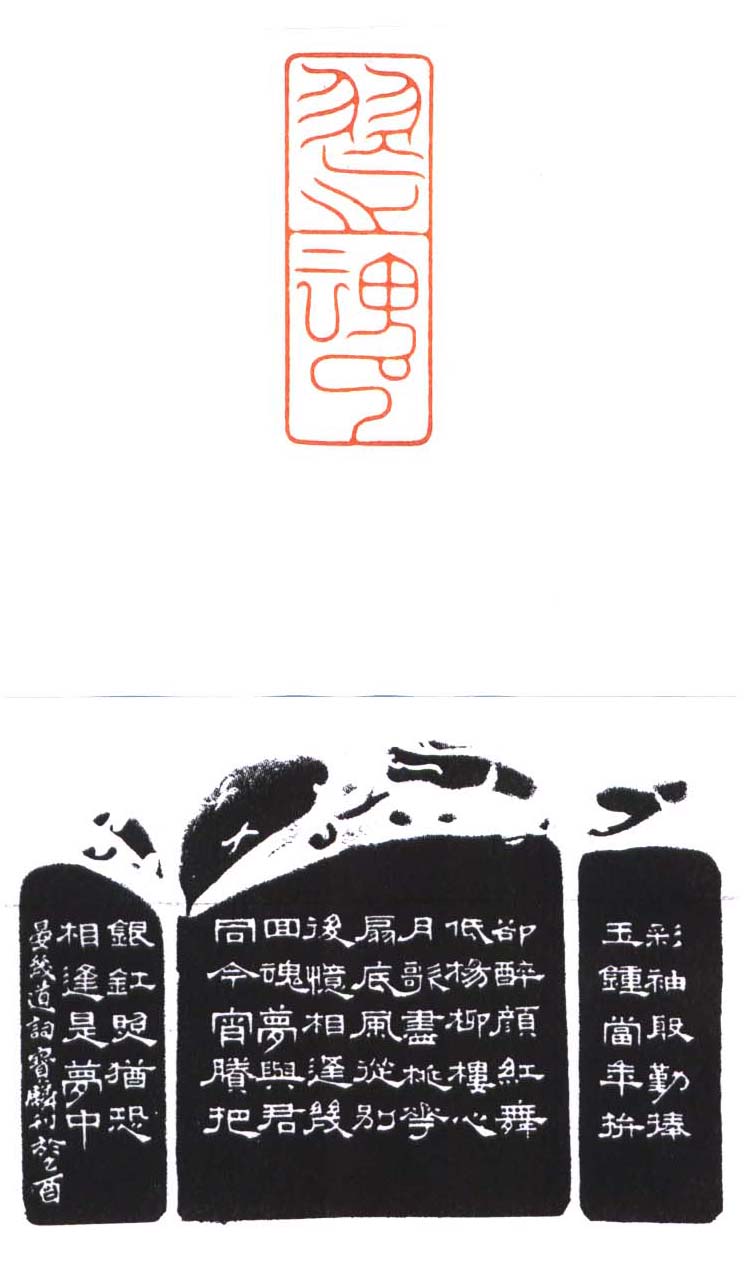 彩袖殷勤捧
玉鍾當年拚
卻醉顏紅舞
低楊柳樓心
月歌盡桃花
扇底風從別
後憶相逢幾
回魂夢與君
同今宵賸把
銀釭照猶恐
相逢是夢中
晏幾道詞寶麟刊於乙酉